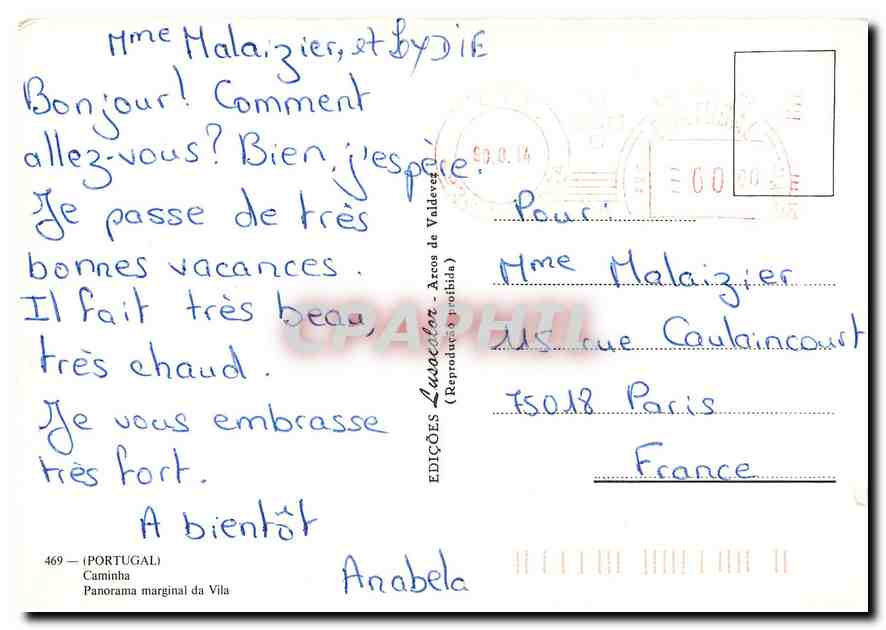 Mme Malaizier, et LYDIE
Bonjour! Comment
allez-vous? Bien, j'espère.
Je passe de très
bonnes vacances.
Il fait très beau,
très chaud.
Je vous embrasse
très fort.
A bientôt
Anabela
469 — (PORTUGAL)
Caminha
Panorama marginal da Vila
EDIÇÕES Lusocolor - Arcos de Valdevez
(Reprodução proibida)
Pour:
Mme Malaizier
115 rue Caulaincourt
75018 Paris
France
CPAPHIL